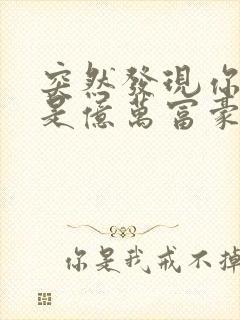 突然發現你
是億萬富豪
你是我戒不掉